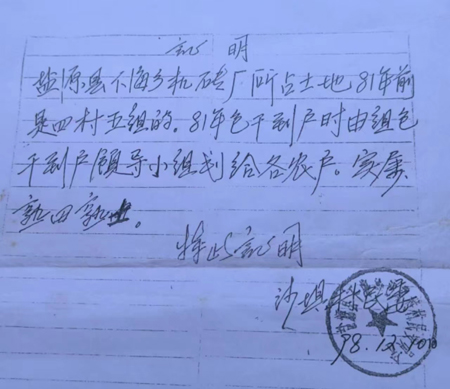 证明
盐源县下海乡机砖厂所占土地81年前
是四村五组的。81年包干到户时由组包
干到户领导小组划给各农户。实属
熟田熟土。
特此证明
沙坝村民委
98.12.10